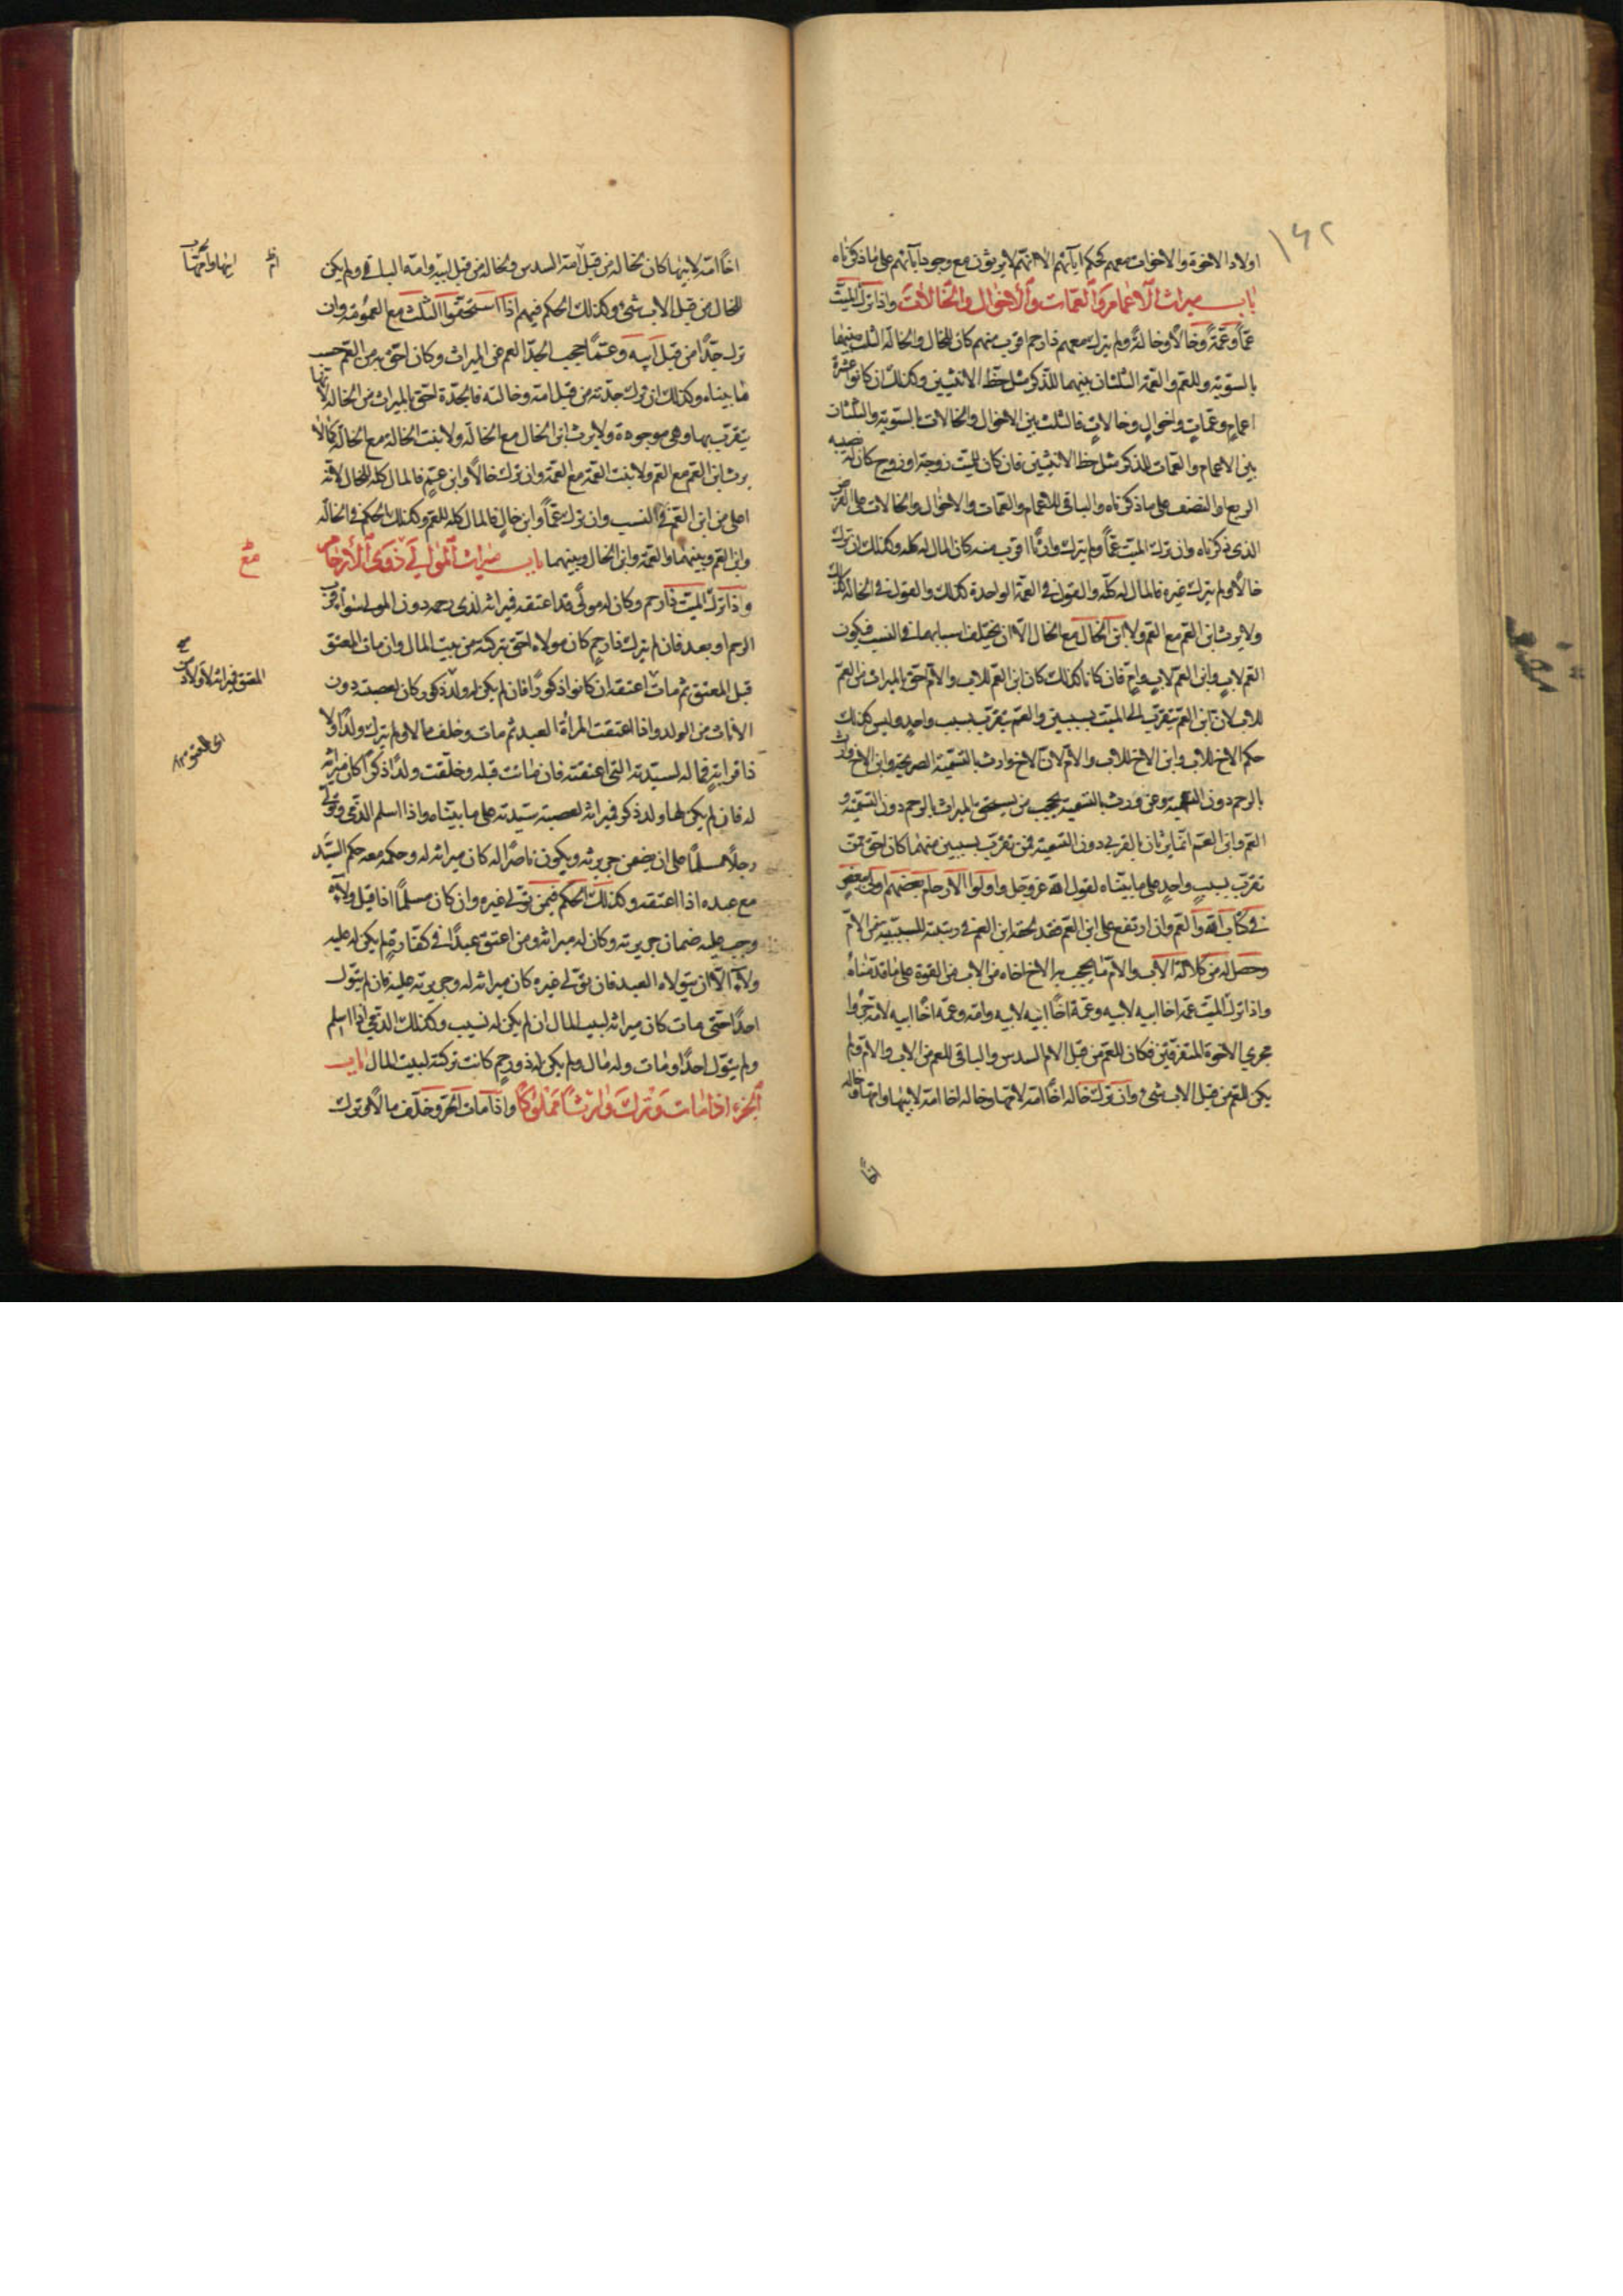 ١٤٢
اولاد الاخوة والاخوات معهم كحكم آبائهم الا انهم لا يرثون مع وجود آبائهم على ما ذكرناه
باب ميراث الاعمام والعمات والاخوال والخالات واذا ترك الميت
عماً وعمةً وخالاً وخالةً ولم يترك معهم ذا رحم اقرب منهم كان للخال والخالة الثلث بينهما
بالسوية وللعم والعمة الثلثان بينهما للذكر مثل حظ الانثيين وكذلك ان كانوا عشرة
اعمامٍ وعماتٍ واخوالٍ وخالاتٍ فالثلث بين الاخوال والخالات بالسوية والثلثان
بين الاعمام والعمات للذكر مثل حظ الانثيين فان كان للميت زوجة او زوج كان له نصيبه
الربع او النصف على ما ذكرناه والباقى للاعمام والعمات والاخوال والخالات على الفرض
الذى ذكرناه وان ترك الميت عماً ولم يترك وارثاً اقرب منه كان المال له كله وكذلك ان ترك
خالاً ولم يترك غيره فالمال له كله والقول فى العمة الواحدة كذلك والقول فى الخالة كذلك
ولا يرث ابن العم مع العم ولا ابن الخال مع الخال الا ان يختلف اسبابهما فى النسب فيكون
العم لابٍ وابن العم لابٍ وامٍ فان كانا كذلك كان ابن العم للاب والام احق بالميراث من العم
للاب لان ابن العم يتقرب الى الميت بسببين والعم يتقرب بسبب واحدٍ وليس كذلك
حكم الاخ للاب وابن الاخ للاب والام لان الاخ وارث بالتسمية الصريحة وابن الاخ وارث
بالرحم دون التسمية ومن ورث بالتسمية يحجب من يستحق الميراث بالرحم دون التسمية و
العم وابن العم انما يرثان بالقربى دون التسمية فمن تقرب بسببين منهما كان احق ممن
تقرب بسببٍ واحدٍ على ما بيناه لقول الله عز وجل واولوا الارحام بعضهم اولى ببعضٍ
فى كتاب الله والعم وان ارتفع على ابن العم فقد لحقه ابن العم فى رتبته للسببية من الام
وحصل له من كلالة الاب والام ما يحجب به الاخ اخاه من الاب من القوة على ما قدمناه
واذا ترك الميت عمه اخا ابيه لابيه وعمه اخا ابيه لابيه وامه وعمه اخا ابيه لامه جروا
مجرى الاخوة المتفرقين فكان للعم من قبل الام السدس والباقى للعم من الاب والام ولم
يكن للعم من قبل الاب شئ وان ترك خاله اخا امه لامها وخاله اخا امه لابيها وامها وخاله
اخا امه لابيها كان لخاله من قبل امه السدس ولخاله من قبل ابيه وامه الباقى ولم يكن
للخال من قبل الاب شئ وكذلك الحكم فيهم اذا استحقوا الثلث مع العمومة وان
ترك جدا من قبل ابيه وعماً يحجب الجد العم عن الميراث وكان احق به من العم حسب
ما بيناه وكذلك ان ترك جدته من قبل امه وخالته فالجدة احق بالميراث من الخالة لانها
يتقرب بها وهى موجودة ولا يرث ابن الخال مع الخالة ولا بنت الخالة مع الخالة كما لا
يرث ابن العم مع العم ولا بنت العمة مع العمة وان ترك خالاً وابن عمٍ فالمال كله للخال لانه
اعلى من ابن العم فى النسب وان ترك عماً وابن خالٍ فالمال كله للعم وكذلك الحكم فى الخالة
وابن العم وبينهما والعمة وابن الخال وبينهما باب ميراث الموالى ذوى الارحام
واذا ترك الميت ذا رحم وكان له مولًى قد اعتقه فميراثه لذى رحمه دون المولى سواء قرب
الرحم او بعد فان لم يترك ذا رحمٍ كان مولاه احق بتركته من بيت المال وان مات المعتق
قبل المعتق ثم مات اعتقه ان كانوا ذكورًا فان لم يكن له ولد ذكور كان لعصبته دون
الاناث من الولد واذا اعتقت المرأة العبد ثم مات وخلف مالا ولم يترك ولدًا ولا
ذا قرابته فماله لسيدته التى اعتقته فان ماتت قبله وخلفت ولدًا ذكرًا كان ميراثه
له فان لم يكن لها ولد ذكور فميراثه لعصبة سيدته على ما بيناه واذا اسلم الذمى وتولى
رجلاً مسلمًا على ان يضمن جريرته ويكون ناصرًا له كان ميراثه له وحكمه معه حكم السيد
مع عبده اذا اعتقه وكذلك الحكم فيمن تولى غيره وان كان مسلمًا اذا قبل ولاءه
وجب عليه ضمان جريرته وكان له ميراثه ومن اعتق عبدًا فى كفارة لم يكن له عليه
ولاء الا ان يتولاه العبد فان تولى غيره كان ميراثه له وجريرته عليه فان لم يتول
احدًا حتى مات كان ميراثه لبيت المال ان لم يكن له نسيب وكذلك الذمى اذا اسلم
ولم يتول احدًا ومات وله مال ولم يكن له ذو رحمٍ كانت تركته لبيت المال باب
الحر اذا مات وترك وارثاً مملوكاً واذا مات الحر وخلف مالاً وترك
المعتق فميراثه لاولاد